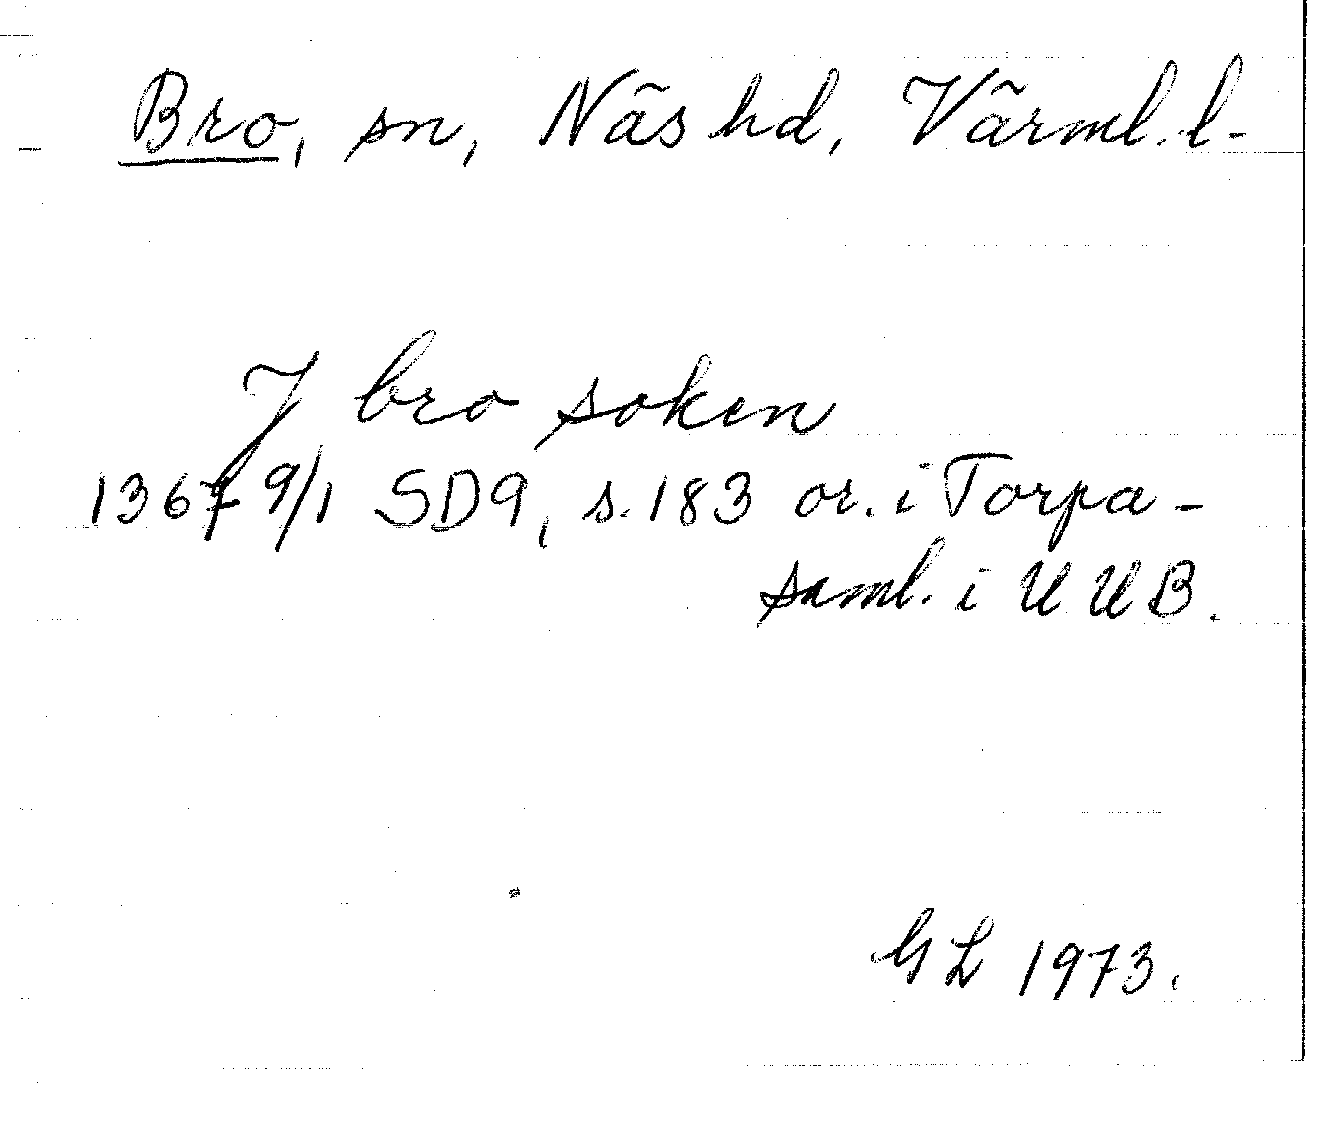 Bro, sn, Näs hd, Värml. l-
J bro soken
1367 9/1 SD9, s. 183 or. i Torpa-
saml. i UUB.
GL 1973.